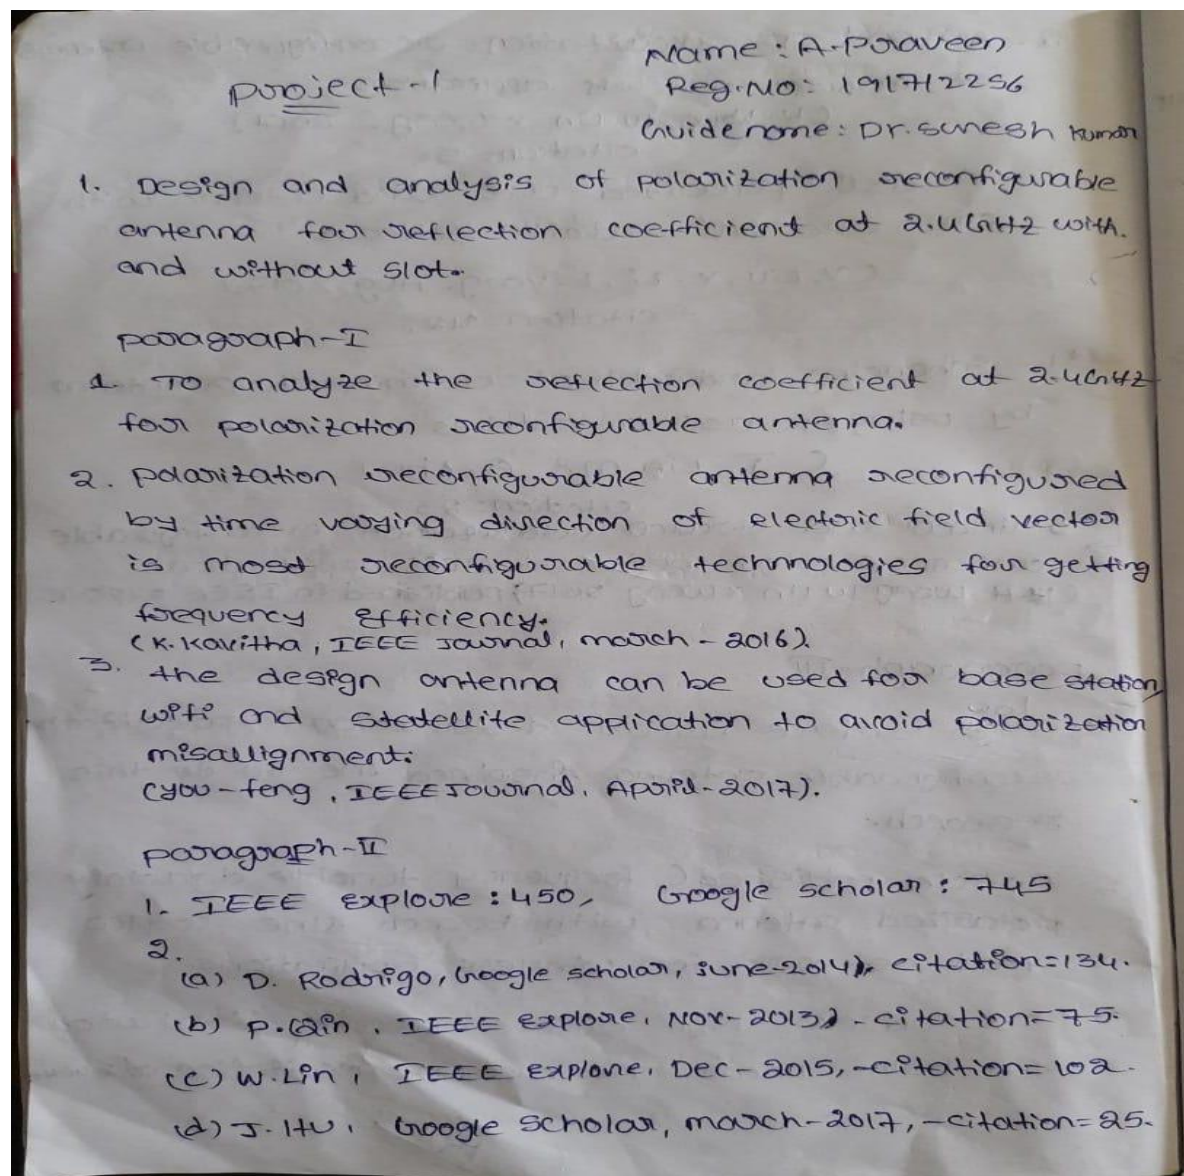 Name: A.Praveen
Project-1
Reg.No: 191712256
Guidename: Dr.Suresh Kumar
1. Design and analysis of polarization reconfigurable
antenna for reflection coefficient at 2.4GHZ with
and without slot.
paragraph-I
1. To analyze the reflection coefficient at 2.4GHZ
for polarization reconfigurable antenna.
2. polarization reconfigurable antenna reconfigured
by time varying direction of electric field vector
is most reconfigurable technnologies for getting
frequency Efficiency.
(K.Kavitha, IEEE Journal, march-2016).
3. the design antenna can be used for base station,
wifi and statellite application to avoid polarization
misallignment.
(you-feng, IEEE Journal, April-2017).
paragraph-II
1. IEEE Explore: 450, Google scholar: 745
2.
(a) D. Rodrigo, Google scholar, june-2014), citation=134.
(b) P.Qin, IEEE Explore, Nov-2013), -citation=75.
(c) W.Lin, IEEE Explore, Dec-2015,-citation=102.
(d) J.Hu, Google Scholar, march-2017,-citation=25.